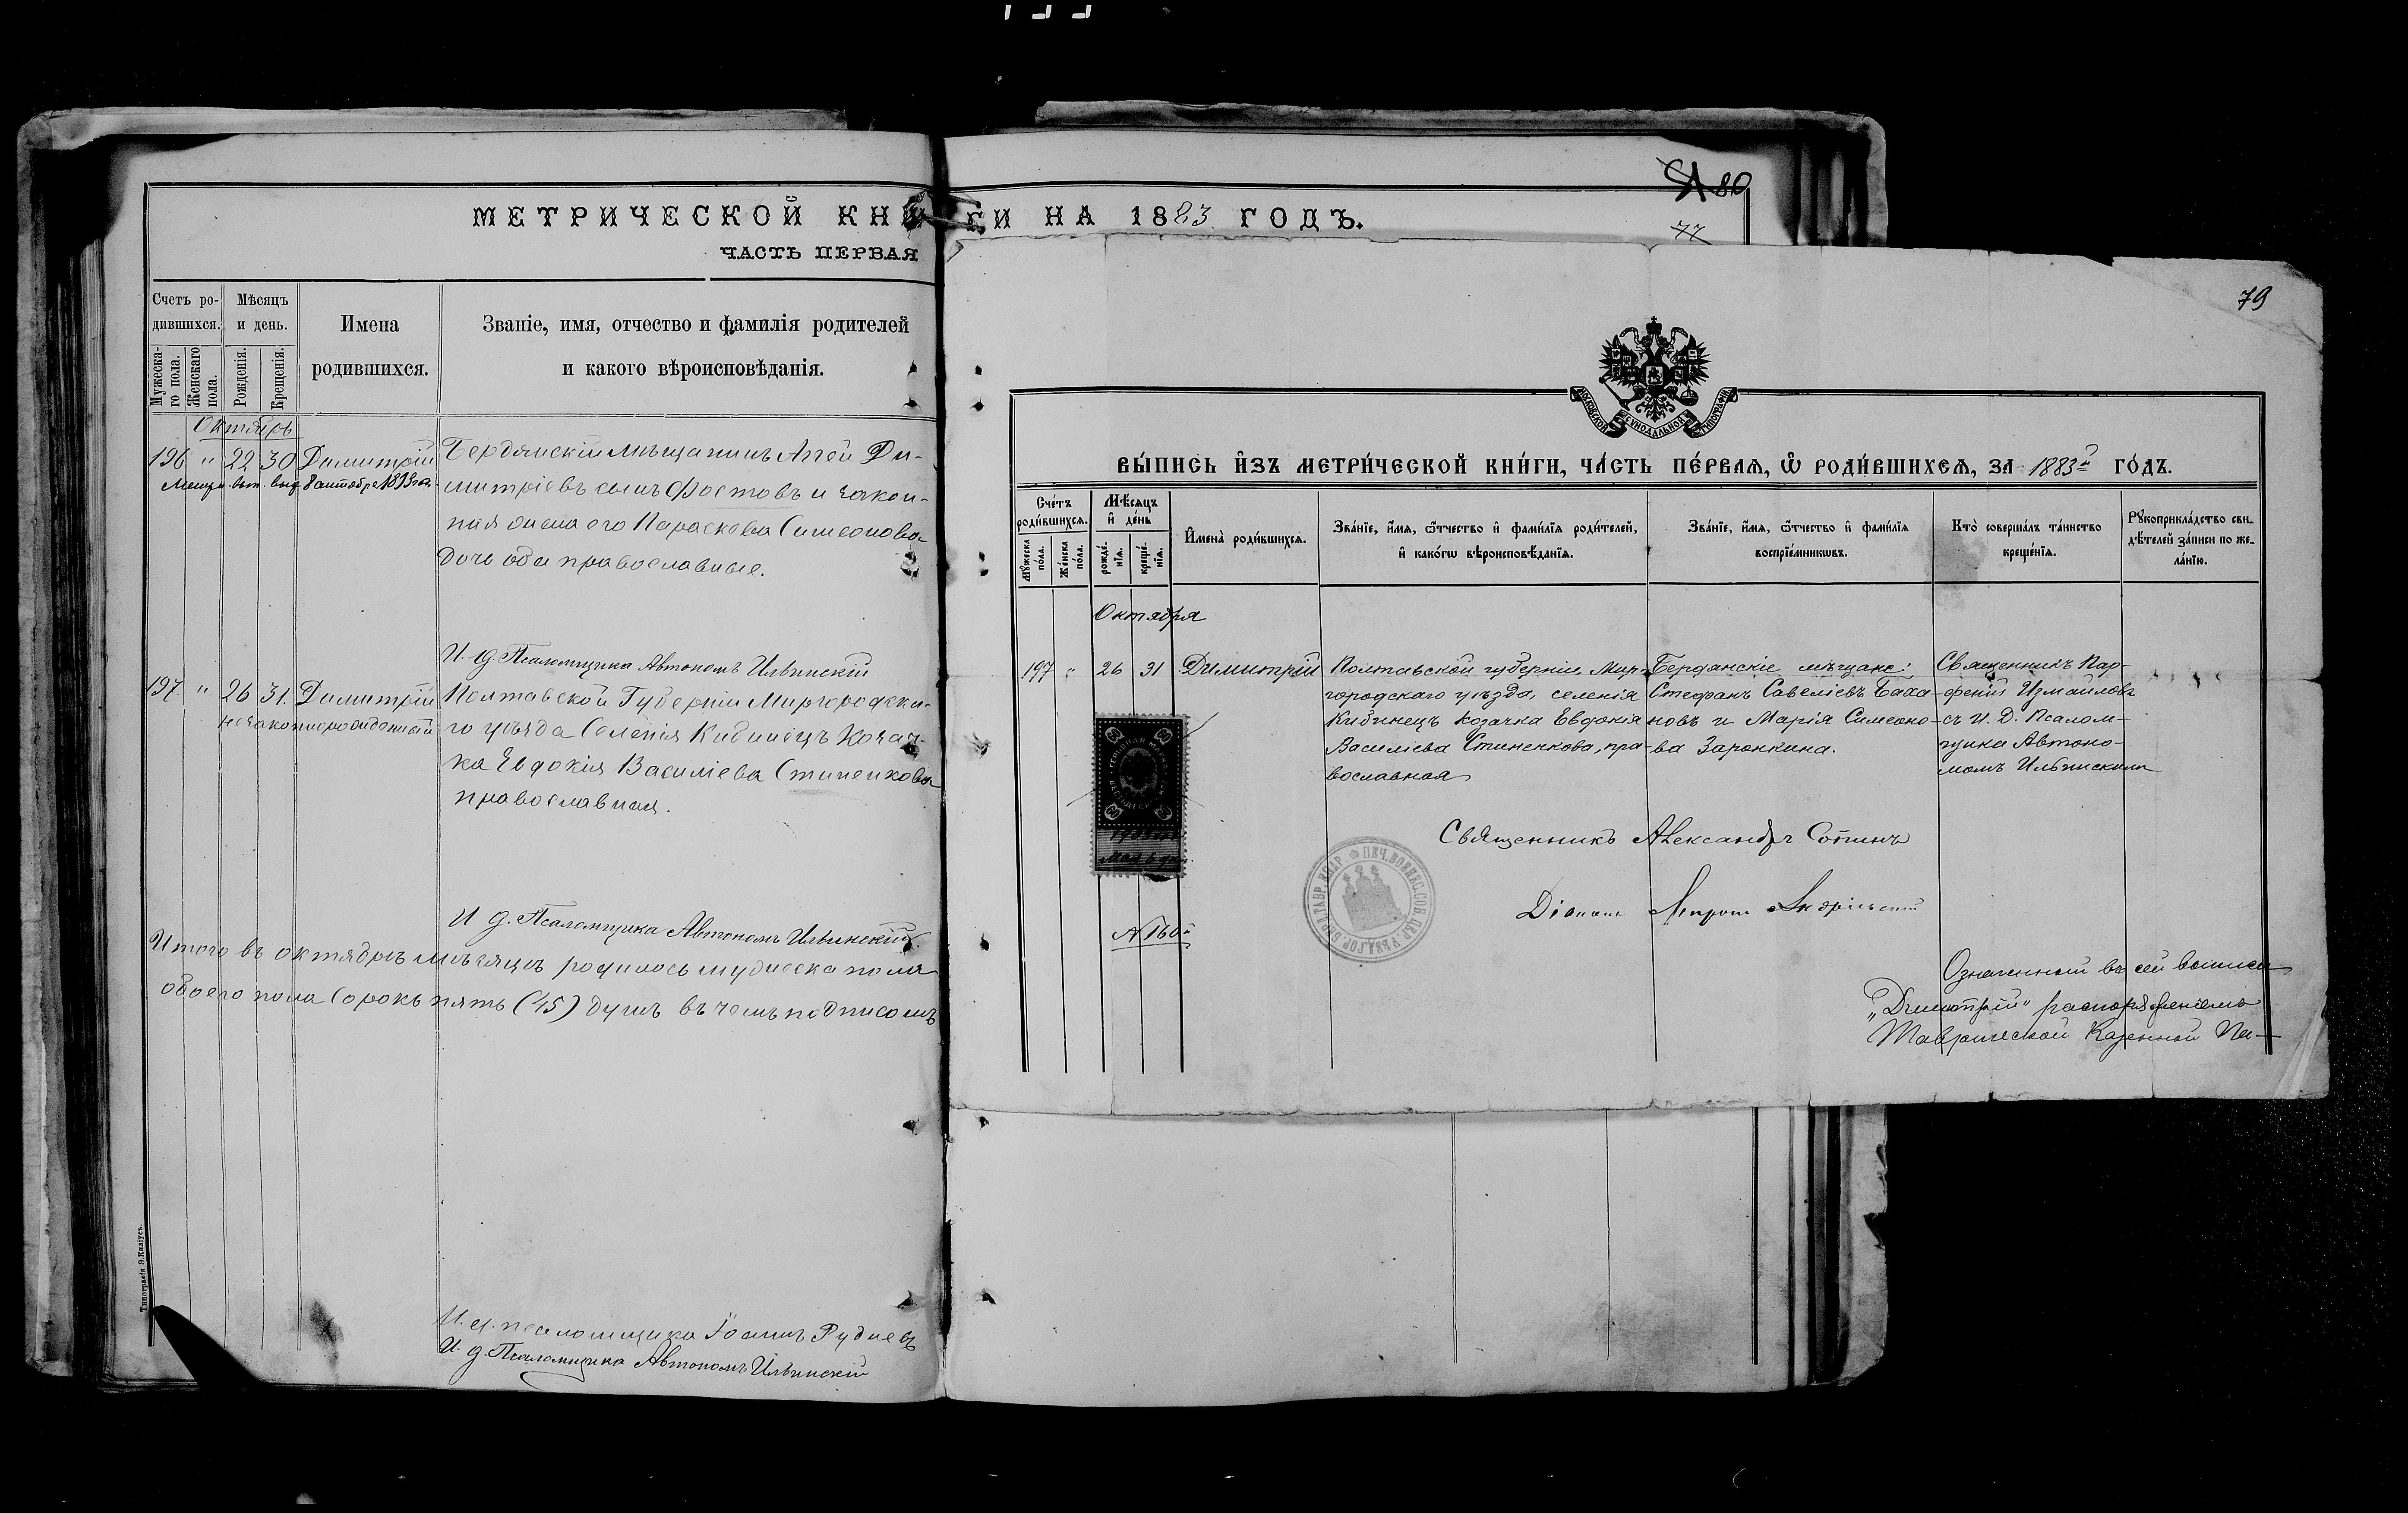 80
МЕТРИЧЕСКОЙ КНИГИ НА 1883 ГОДЪ.
77
ЧАСТЬ ПЕРВАЯ
Счетъ родившихся.
Мужескаго пола.
Женскаго пола.
Мѣсяцъ и день.
Рожденія.
Крещенія.
Имена родившихся.
Званіе, имя, отчество и фамилія родителей
и какого вѣроисповѣданія.
Октябрь
196 " 22 30 Димитрій
Бердянскій мѣщанинъ Аггей Ди-
митріевъ сынъ Фостовъ и закон-
ная жена его Параскева Симеонова
дочь оба православные.
И. д. Псаломщика Автономъ Ильинскій
197 " 26 31. Димитрій
незаконнорожденный
Полтавской Губерніи Миргородска-
го уѣзда Селенія Кибинецъ Козач-
ка Евдокія Василіева Стиненкова
православная.
И д. Псаломщика Автономъ Ильинскій
Итого въ октябрѣ мѣсяцѣ родилось мужеска пола
обоего пола Сорокъ пять (45) душъ въ чемъ подписомъ
И. д. псаломщика Іоаннъ Рудневъ
И. д. Псаломщика Автономъ Ильинскій
Типографія Э. Килусъ.
79
МОСКОВСКОЙ СѴНОДАЛЬНОЙ ТИПОГРАФІИ
ВЫ́ПИСЬ И҆ЗЪ МЕТРИ́ЧЕСКОЙ КНИ́ГИ, ЧА́СТЬ ПЕ́РВАѦ, Ѡ҆ РОДИ́ВШИХСѦ, ЗА 1883й ГО́ДЪ.
Сче́тъ роди́вшихсѧ.
Мꙋ́жеска по́ла.
Же́нска по́ла.
Мѣ́сѧцъ и҆ де́нь
рожде́нїѧ.
креще́нїѧ.
И҆мена̀ роди́вшихсѧ.
Зва́нїе, и҆́мѧ, ѻ҆́тчество и҆ фами́лїѧ роди́телей,
и҆ како́гѡ вѣроисповѣ́данїѧ.
Зва́нїе, и҆́мѧ, ѻ҆́тчество и҆ фами́лїѧ
воспрїе́мникѡвъ.
Кто̀ соверша́лъ та́инство
креще́нїѧ.
Рꙋкоприкла́дство сви-
дѣ́телей за́писи по же-
ла́нїю.
Октября
197 " 26 31 Димитрій
Полтавской губерніи, Мир-
городскаго уѣзда, селенія
Кибинецъ козачка Евдокія
Василіева Стиненкова, пра-
вославная
Бердянскіе мѣщане:
Стефанъ Савеліевъ Баха-
новъ и Марія Симеоно-
ва Заронкина.
Священникъ Пар-
феній Измайловъ
съ И. Д. Псалом-
щика Автоно-
момъ Ильинскимъ
ГЕРБОВАЯ МАРКА
60
Священникъ Александръ Сотинъ
Діаконъ
Означенный въ сей выписи
„Димитрій" распоряженіемъ
Таврической Казенной Па-